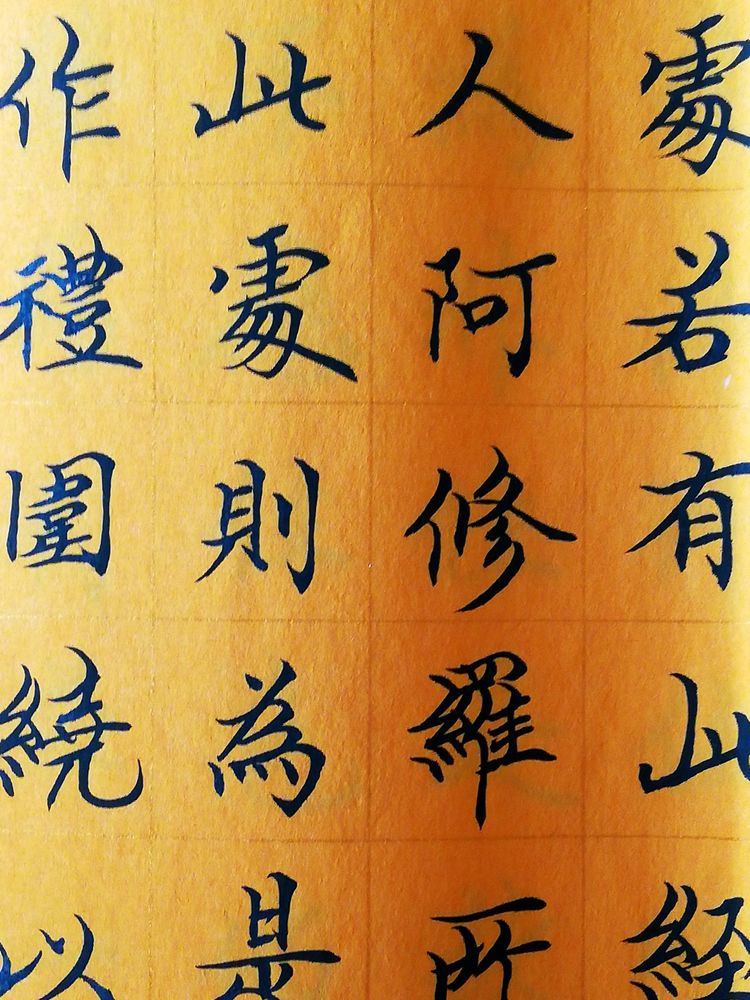 處若有此經
人阿修羅所
此處則為是
作禮圍繞以